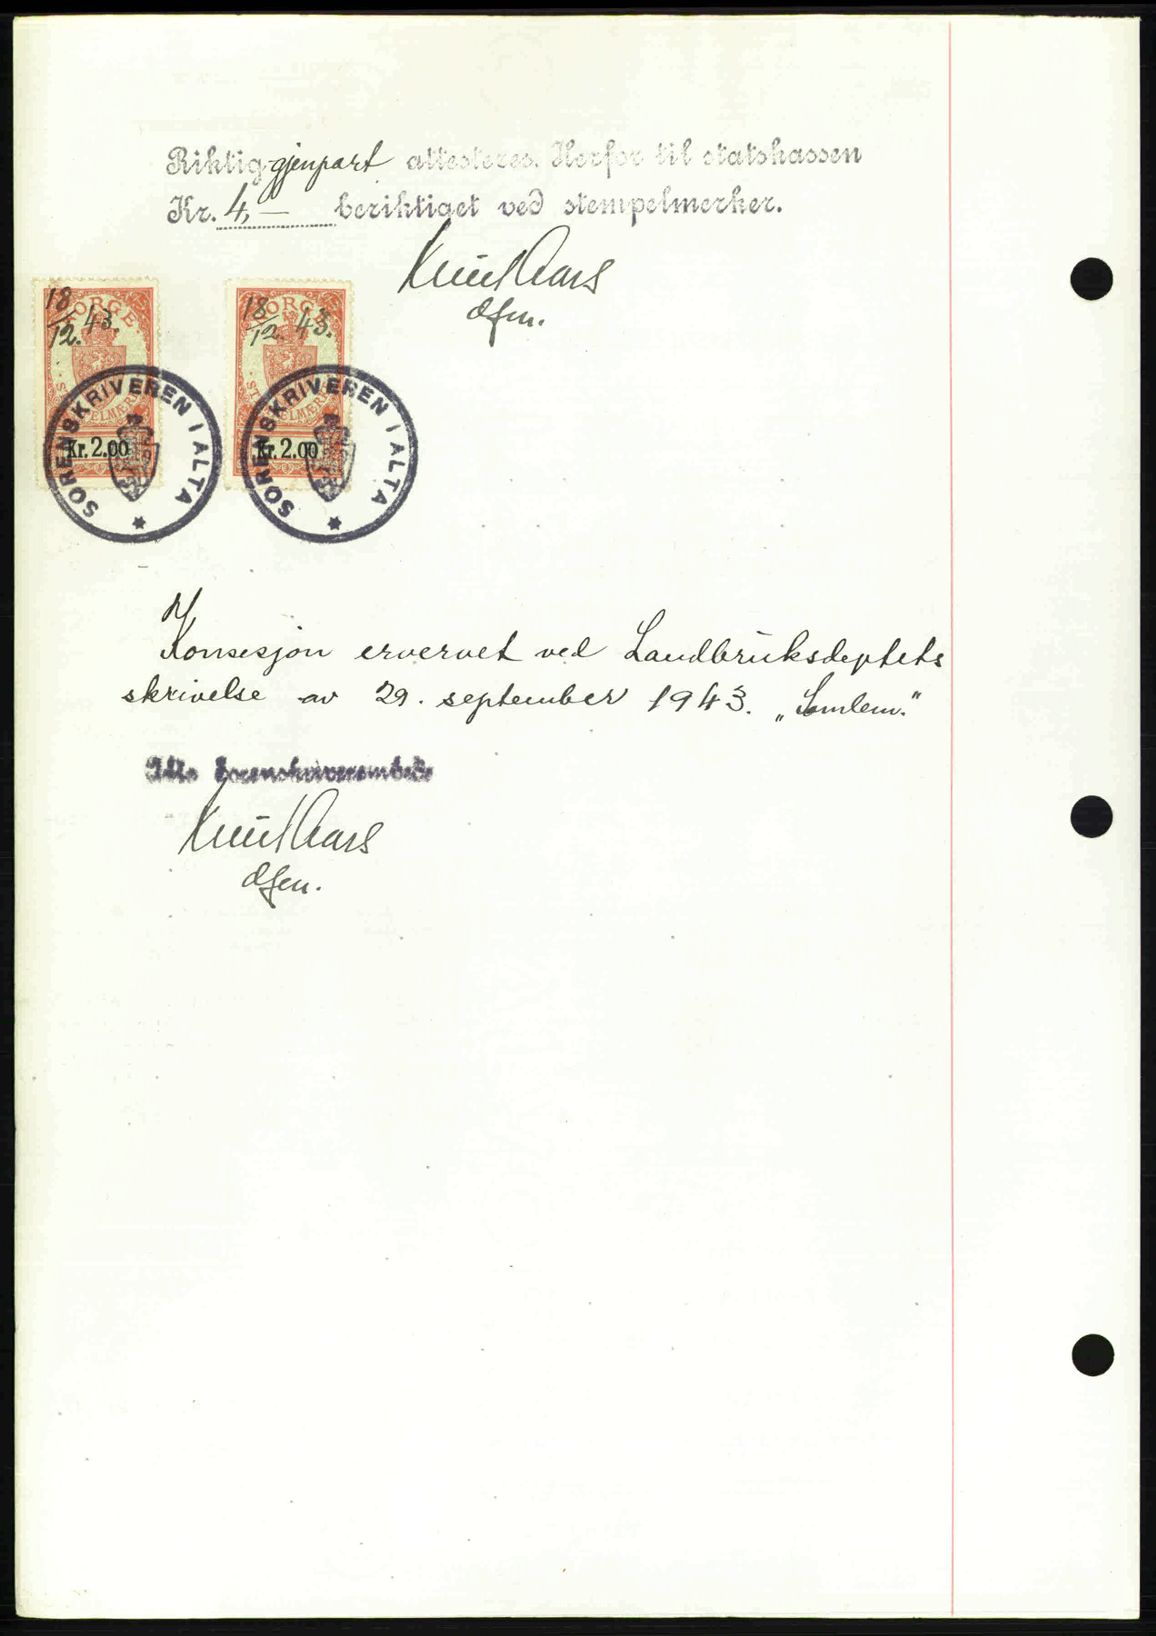 Riktig gjenpart attesteres. Herfor til statskassen
Kr. 4,— beriktiget ved stempelmerker.
Knut Aars
dfm.
18/12. 43.
NORGE
STEMPELMÆRKE
Kr. 2.00
SORENSKRIVEREN I ALTA
18/12. 43.
NORGE
STEMPELMÆRKE
Kr. 2.00
SORENSKRIVEREN I ALTA
Konsesjon ervervet ved Landbruksdeptets
skrivelse av 29. september 1943.
Alta Sorenskriverembede
Knut Aars
dfm.